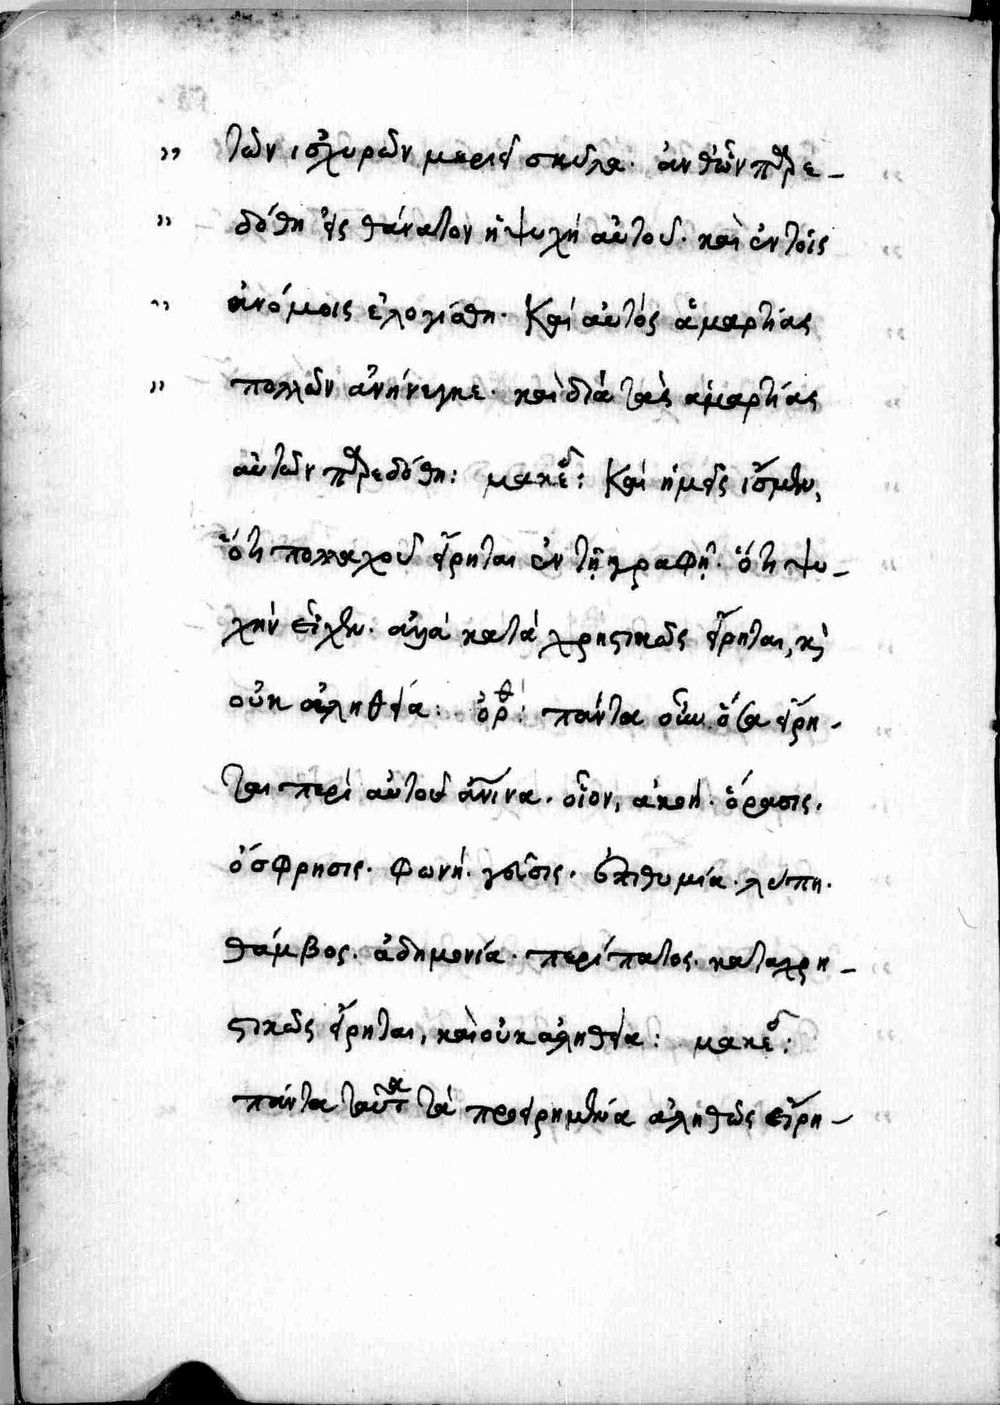 " τῶν ἰσχυρῶν μεριεῖ σκῦλα· ἀνθ' ὧν παρε-
" δόθη εἰς θάνατον ἡ ψυχὴ αὐτοῦ· καὶ ἐν τοῖς
" ἀνόμοις ἐλογίσθη· Καὶ αὐτὸς ἁμαρτίας
" πολλῶν ἀνήνεγκε· καὶ διὰ τὰς ἁμαρτίας
αὐτῶν παρεδόθη: μακεδ: Καὶ ἡμεῖς ἴσμεν,
ὅτι πολλαχοῦ εἴρηται ἐν τῇ γραφῇ· ὅτι ψυ-
χὴν εἶχεν· ἀλλὰ καταχρηστικῶς εἴρηται, κὶ
οὐκ ἀληθείᾳ: ὀρθ: πάντα οὖν ὅσα εἴρη-
ται περὶ αὐτοῦ ἀνθρώπινα· οἷον, ἀκοή· ὅρασις·
ὄσφρησις· φωνή· γεῦσις· ἐπιθυμία· λύπη·
θάμβος· ἀδημονία· περίπατος· καταχρη-
στικῶς εἴρηται, καὶ οὐκ ἀληθείᾳ: μακεδ:
πάντα ταῦτα τὰ προειρημένα ἀληθῶς εἴρη-